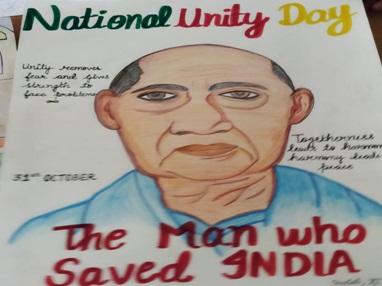 National Unity Day
Unity removes
fear and gives
strength to
face problems
Togetherness
leads to harmony
harmony leads
peace
31ST OCTOBER
The Man who
Saved INDIA